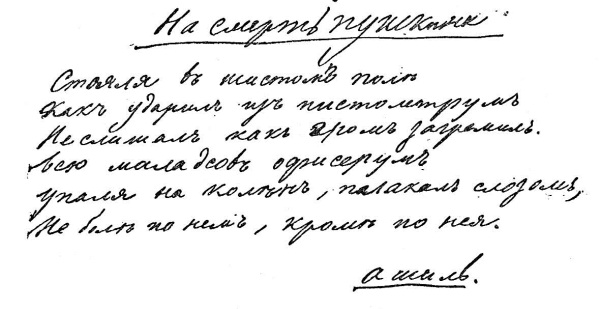 На смерть Пушкина
Стояля въ шистомъ полѣ
Какъ ударилъ изъ пистолетрумъ
Не слишалъ какъ громъ загремилъ.
Всю маладсовъ офисерумъ
упаля на колѣнъ, палакалъ слозомъ,
Не болѣ по немъ, кромѣ по нея.
ашилъ.